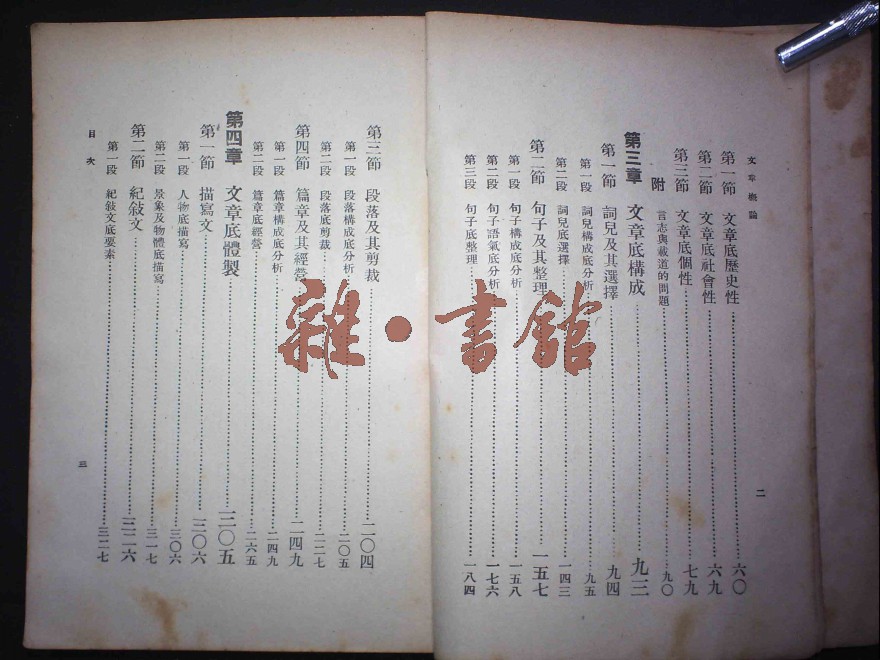 文章概論
第一節 文章底歷史性……六〇
第二節 文章底社會性……六九
第三節 文章底個性……七九
附 言志與載道的問題……九〇
第三章 文章底構成……九三
第一節 詞兒及其選擇……九四
第一段 詞兒構成底分析……九五
第二段 詞兒底選擇……一四三
第二節 句子及其整理……一五七
第一段 句子構成底分析……一五八
第二段 句子語氣底分析……一七六
第三段 句子底整理……一八四
二
第三節 段落及其剪裁……二〇四
第一段 段落構成底分析……二〇五
第二段 段落底剪裁……二二七
第四節 篇章及其經營……二四九
第一段 篇章構成底分析……二四九
第二段 篇章底經營……二六五
第四章 文章底體製……三〇五
第一節 描寫文……三〇六
第一段 人物底描寫……三〇六
第二段 景象及物體底描寫……三一七
第二節 紀敍文……三二六
第一段 紀敍文底要素……三二七
目次
三
雜·書館